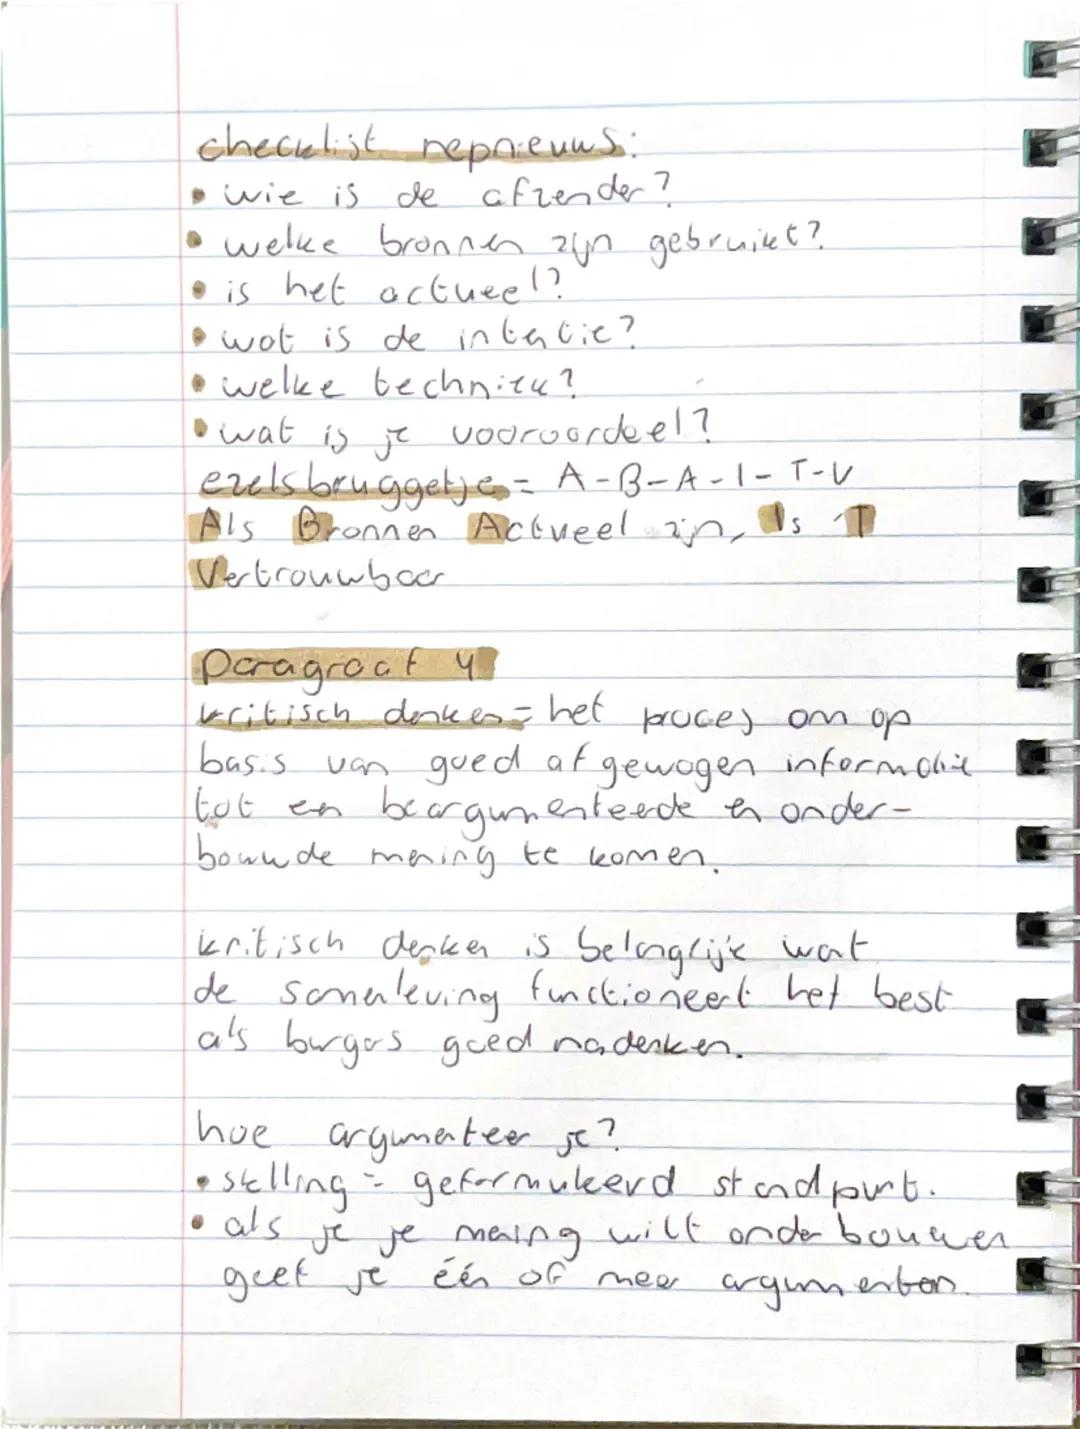 checklist nepnieuws:
• wie is de afzender?
• welke bronnen zijn gebruikt?
• is het actueel?
• wat is de intentie?
• welke techniek?
• wat is je vooroordeel?
ezelsbruggetje = A-B-A-I-T-V
Als Bronnen Actueel zijn, Is 'T
Vertrouwbaar
Paragraaf 4
kritisch denken = het proces om op
basis van goed afgewogen informatie
tot een beargumenteerde en onder-
bouwde mening te komen.
kritisch denken is belangrijk want
de samenleving functioneert het best
als burgers goed nadenken.
hoe argumenteer je?
• stelling = geformuleerd standpunt.
• als je je mening wilt onderbouwen
geef je één of meer argumenten.